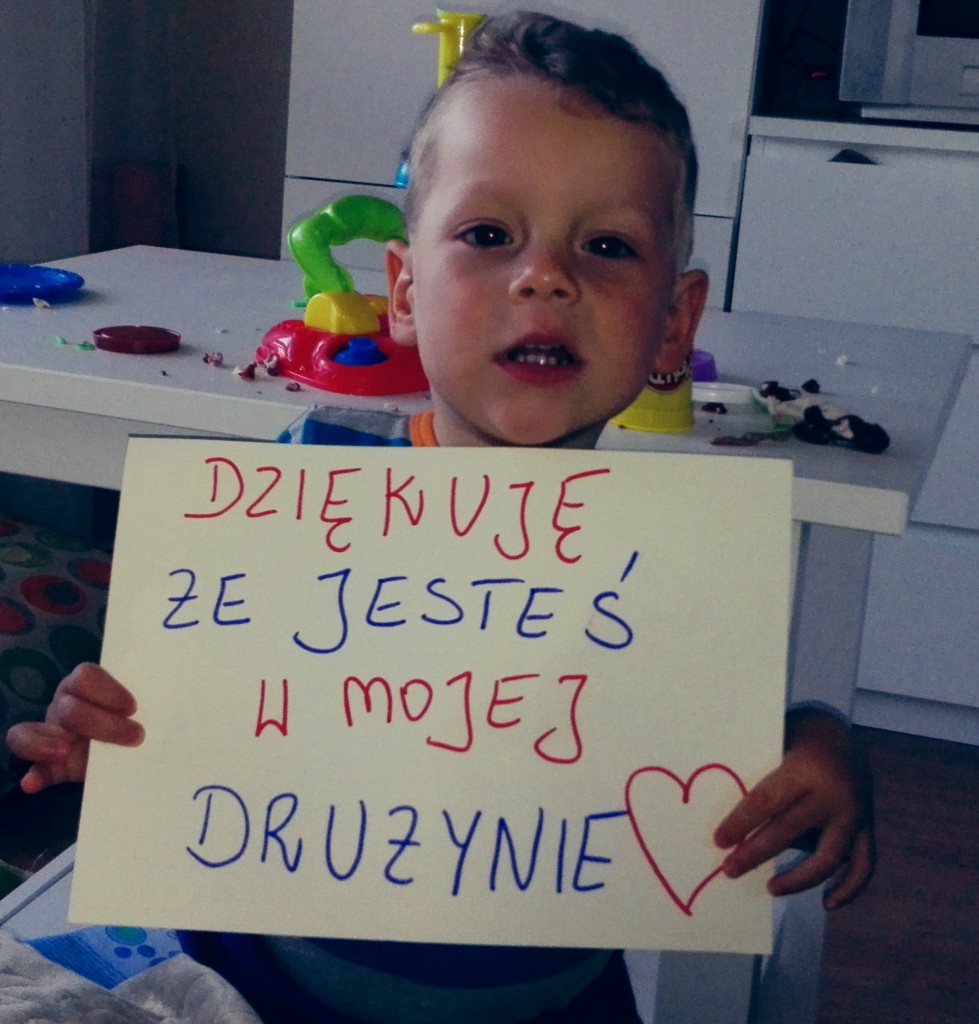 DZIĘKUJĘ
ZE JESTEŚ
W MOJEJ
DRUZYNIE